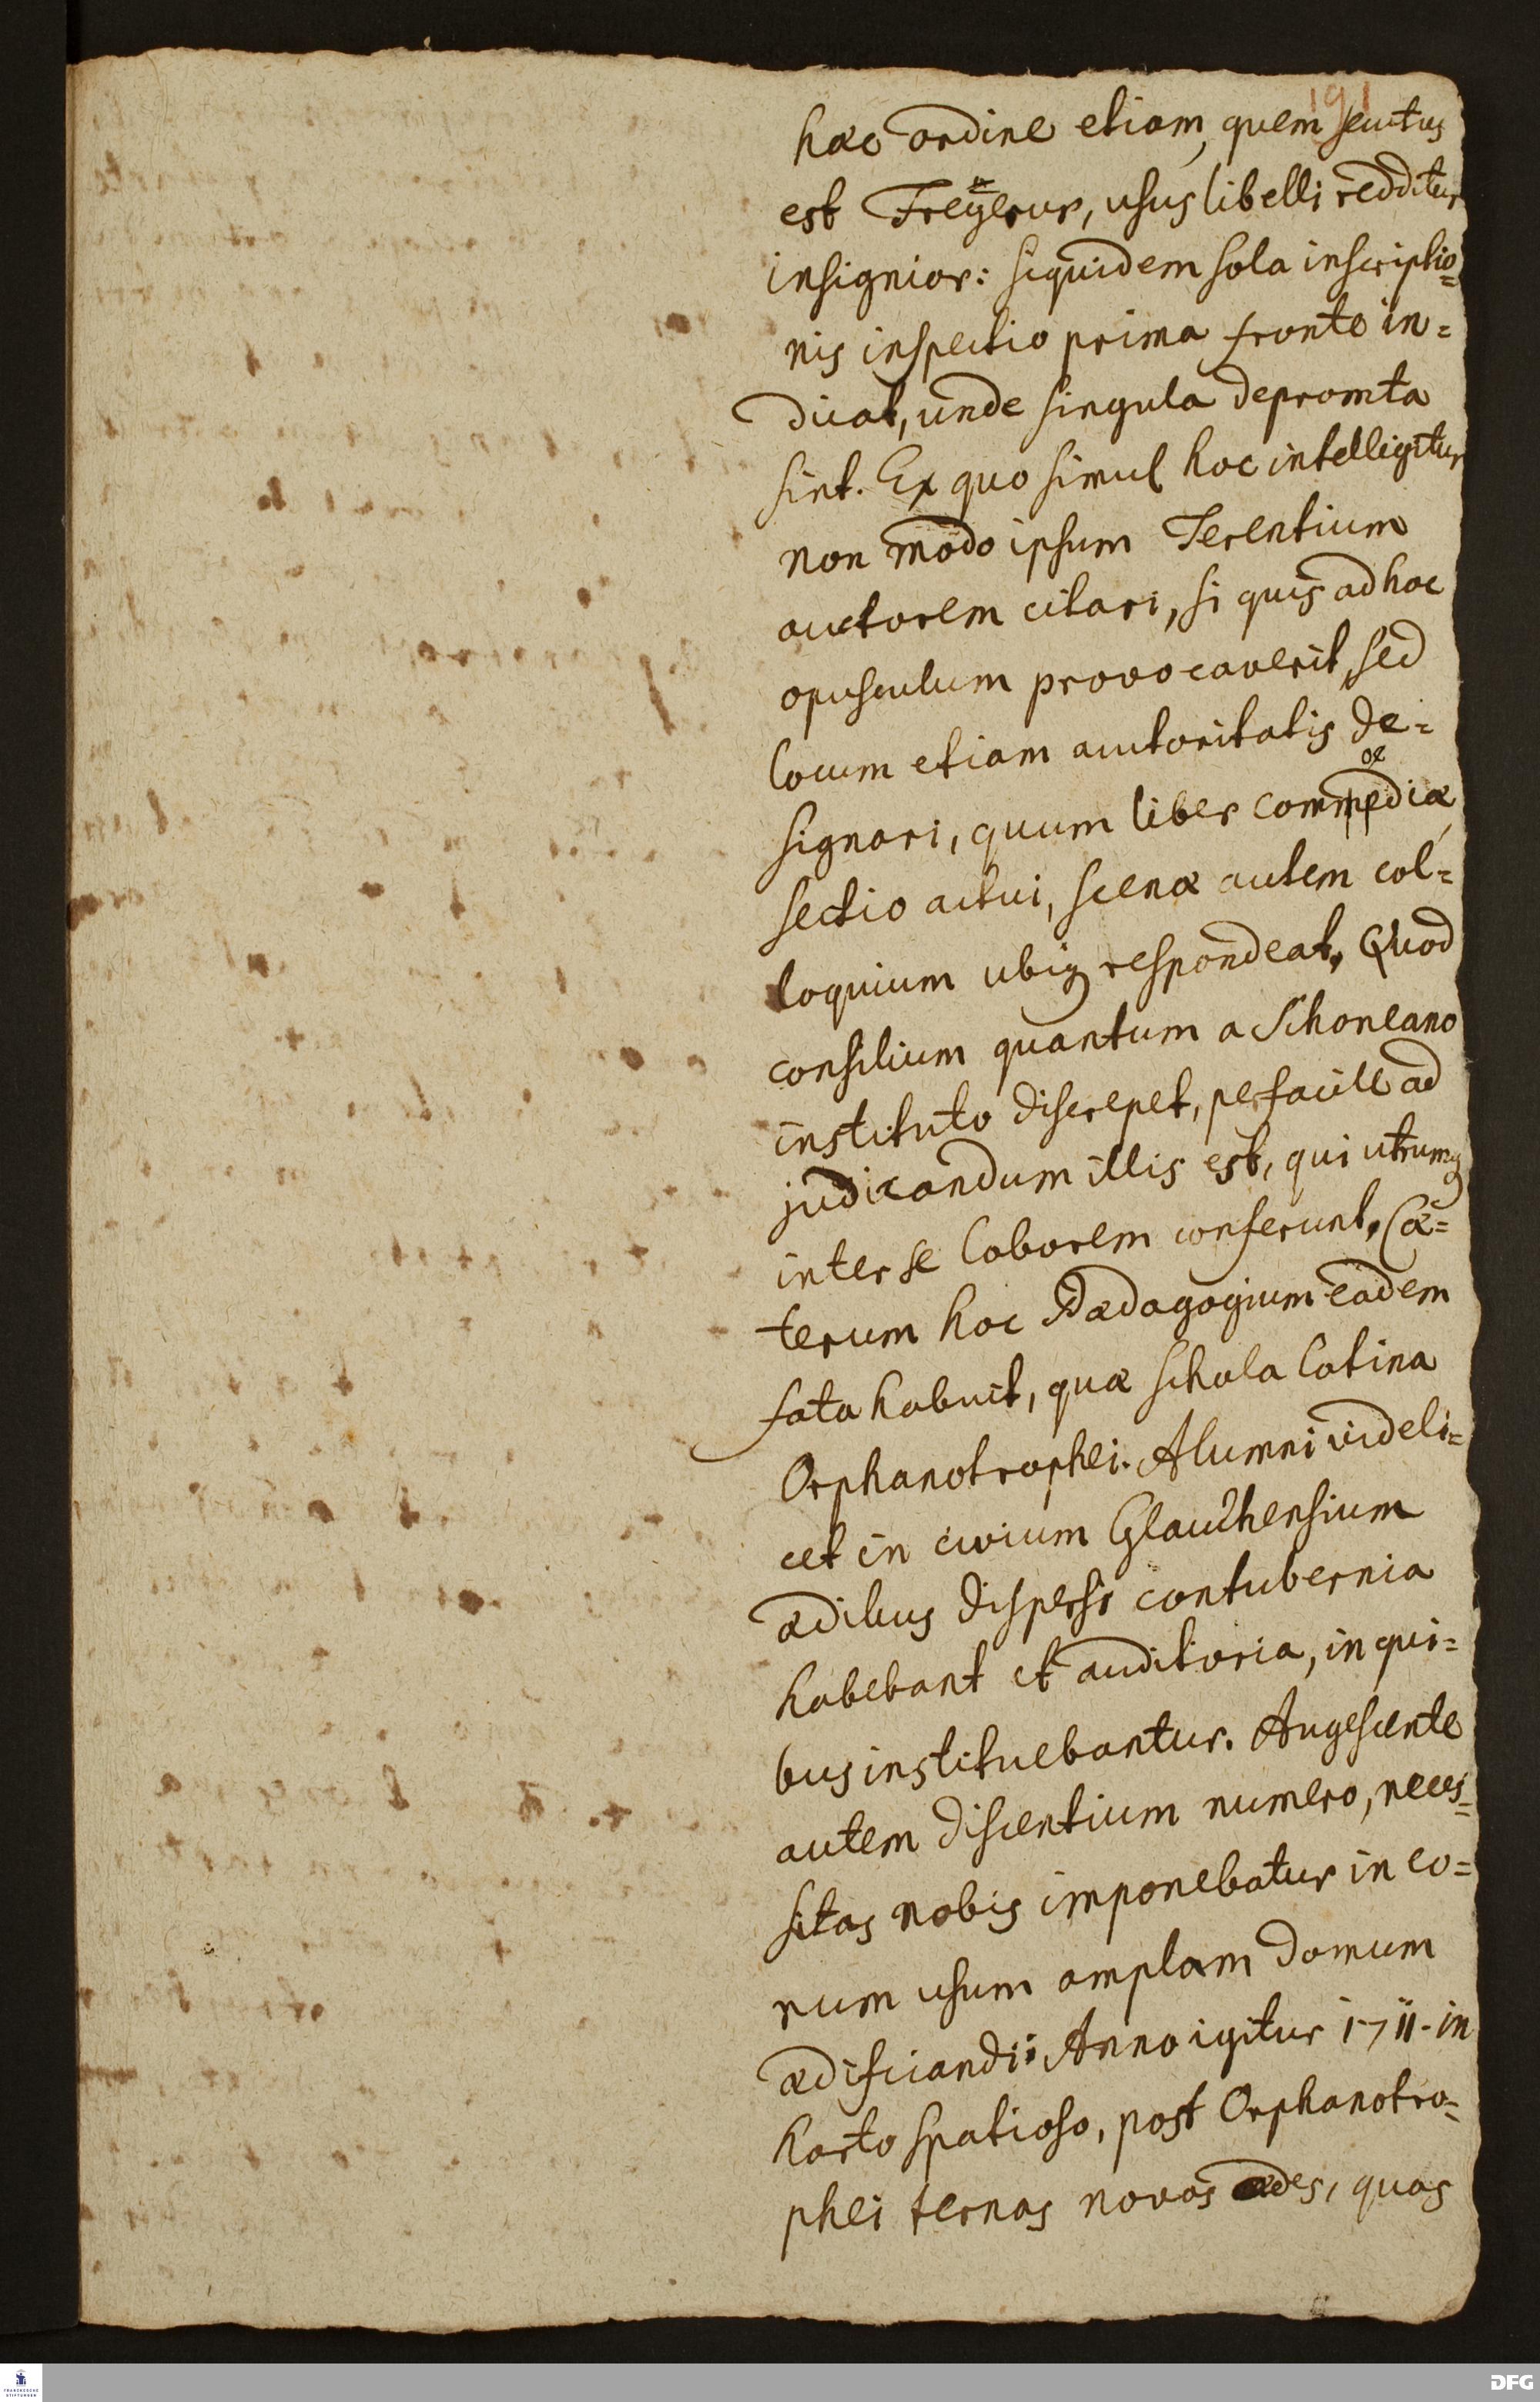 191
hac ordine etiam, quem secutus
est Freÿerus, usus libelli redditur
insignior: siquidem sola inscriptio=
nis inspectio prima fronte in=
dicat, unde singula depromta
sint. Ex quo simul hoc intelligitur
non modo ipsum Terentium
auctorem citari, si quis ad hoc
opusculum provocaverit, sed
locum etiam auctoritatis de=
signari, quum liber commœdiæ,
sectio actui, scenæ autem col=
loquium ubiq respondeat. Quod
consilium quantum a Schoneano
instituto discrepet, perfacile ad
judicandum illis est, qui utrumq
inter se laborem conferunt. Cæ=
terum hoc Pædagogium eadem
fata habuit, quæ schola latina
Orphanotrophei. Alumni videli=
cet in civium Glauchensium
ædibus dispersi contubernia
habebant et auditoria, in qui=
bus instituebantur. Augescente
autem discentium numero, neces=
sitas nobis imponebatur in eo=
rum usum amplam domum
ædificandi: Anno igitur 1711. in
horto spatioso, post Orphanotro=
phei ternas novas ædes, quas
FRANCKESCHE
STIFTUNGEN
DFG